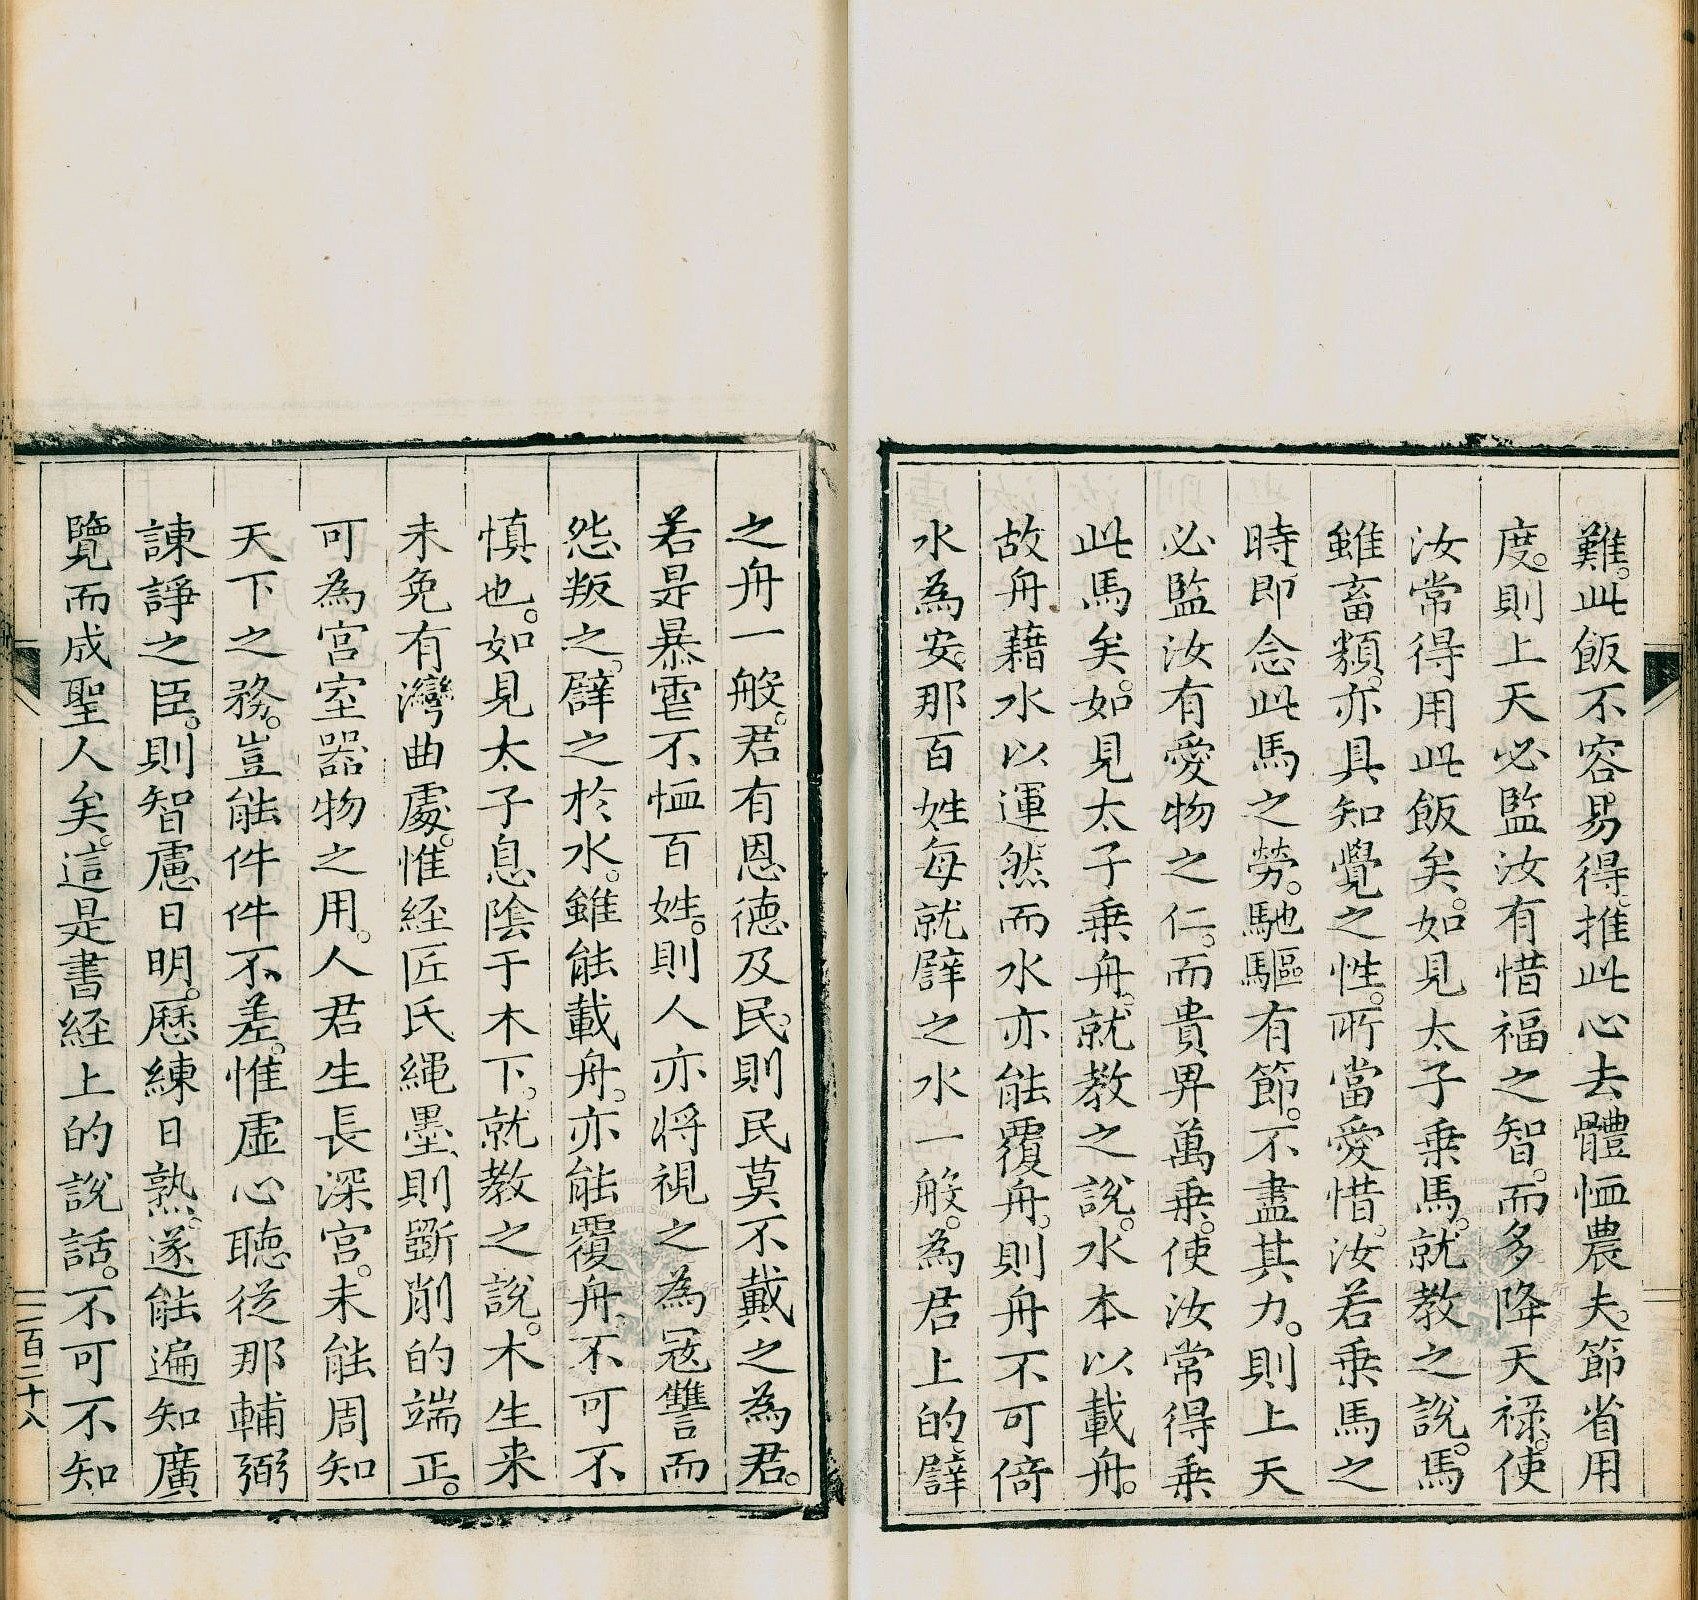 難。此飯不容易得、推此心去體恤農夫。節省用
度。則上天必監汝有惜福之智。而多降天祿。使
汝常得用此飯矣。如見太子乗馬。就教之說。馬
雖畜類。亦具知覺之性。所當愛惜。汝若乗馬之
時、即念此馬之勞。馳驅有節。不盡其力。則上天
必監汝有愛物之仁。而貴畀萬乗。使汝常得乗
此馬矣。如見太子乗舟。就教之說。水本以載舟。
故舟藉水以運、然而水亦能覆舟。則舟不可倚
水為安。那百姓每就譬之水一般。為君上的、譬
之舟一般。君有恩德及民、則民莫不戴之為君。
若是暴虐不恤百姓。則人亦將視之為冦讐而
怨叛之。譬之於水。雖能載舟。亦能覆舟、不可不
慎也。如見太子息陰于木下。就教之說。木生来
未免有灣曲處。惟經匠氏繩墨、則斲削的端正。
可為宮室器物之用。人君生長深宮。未能周知
天下之務。豈能件件不差。惟虛心聽從那輔弼
諫諍之臣。則智慮日明。歷練日熟。遂能遍知廣
覽而成聖人矣。這是書経上的說話。不可不知
二百二十八